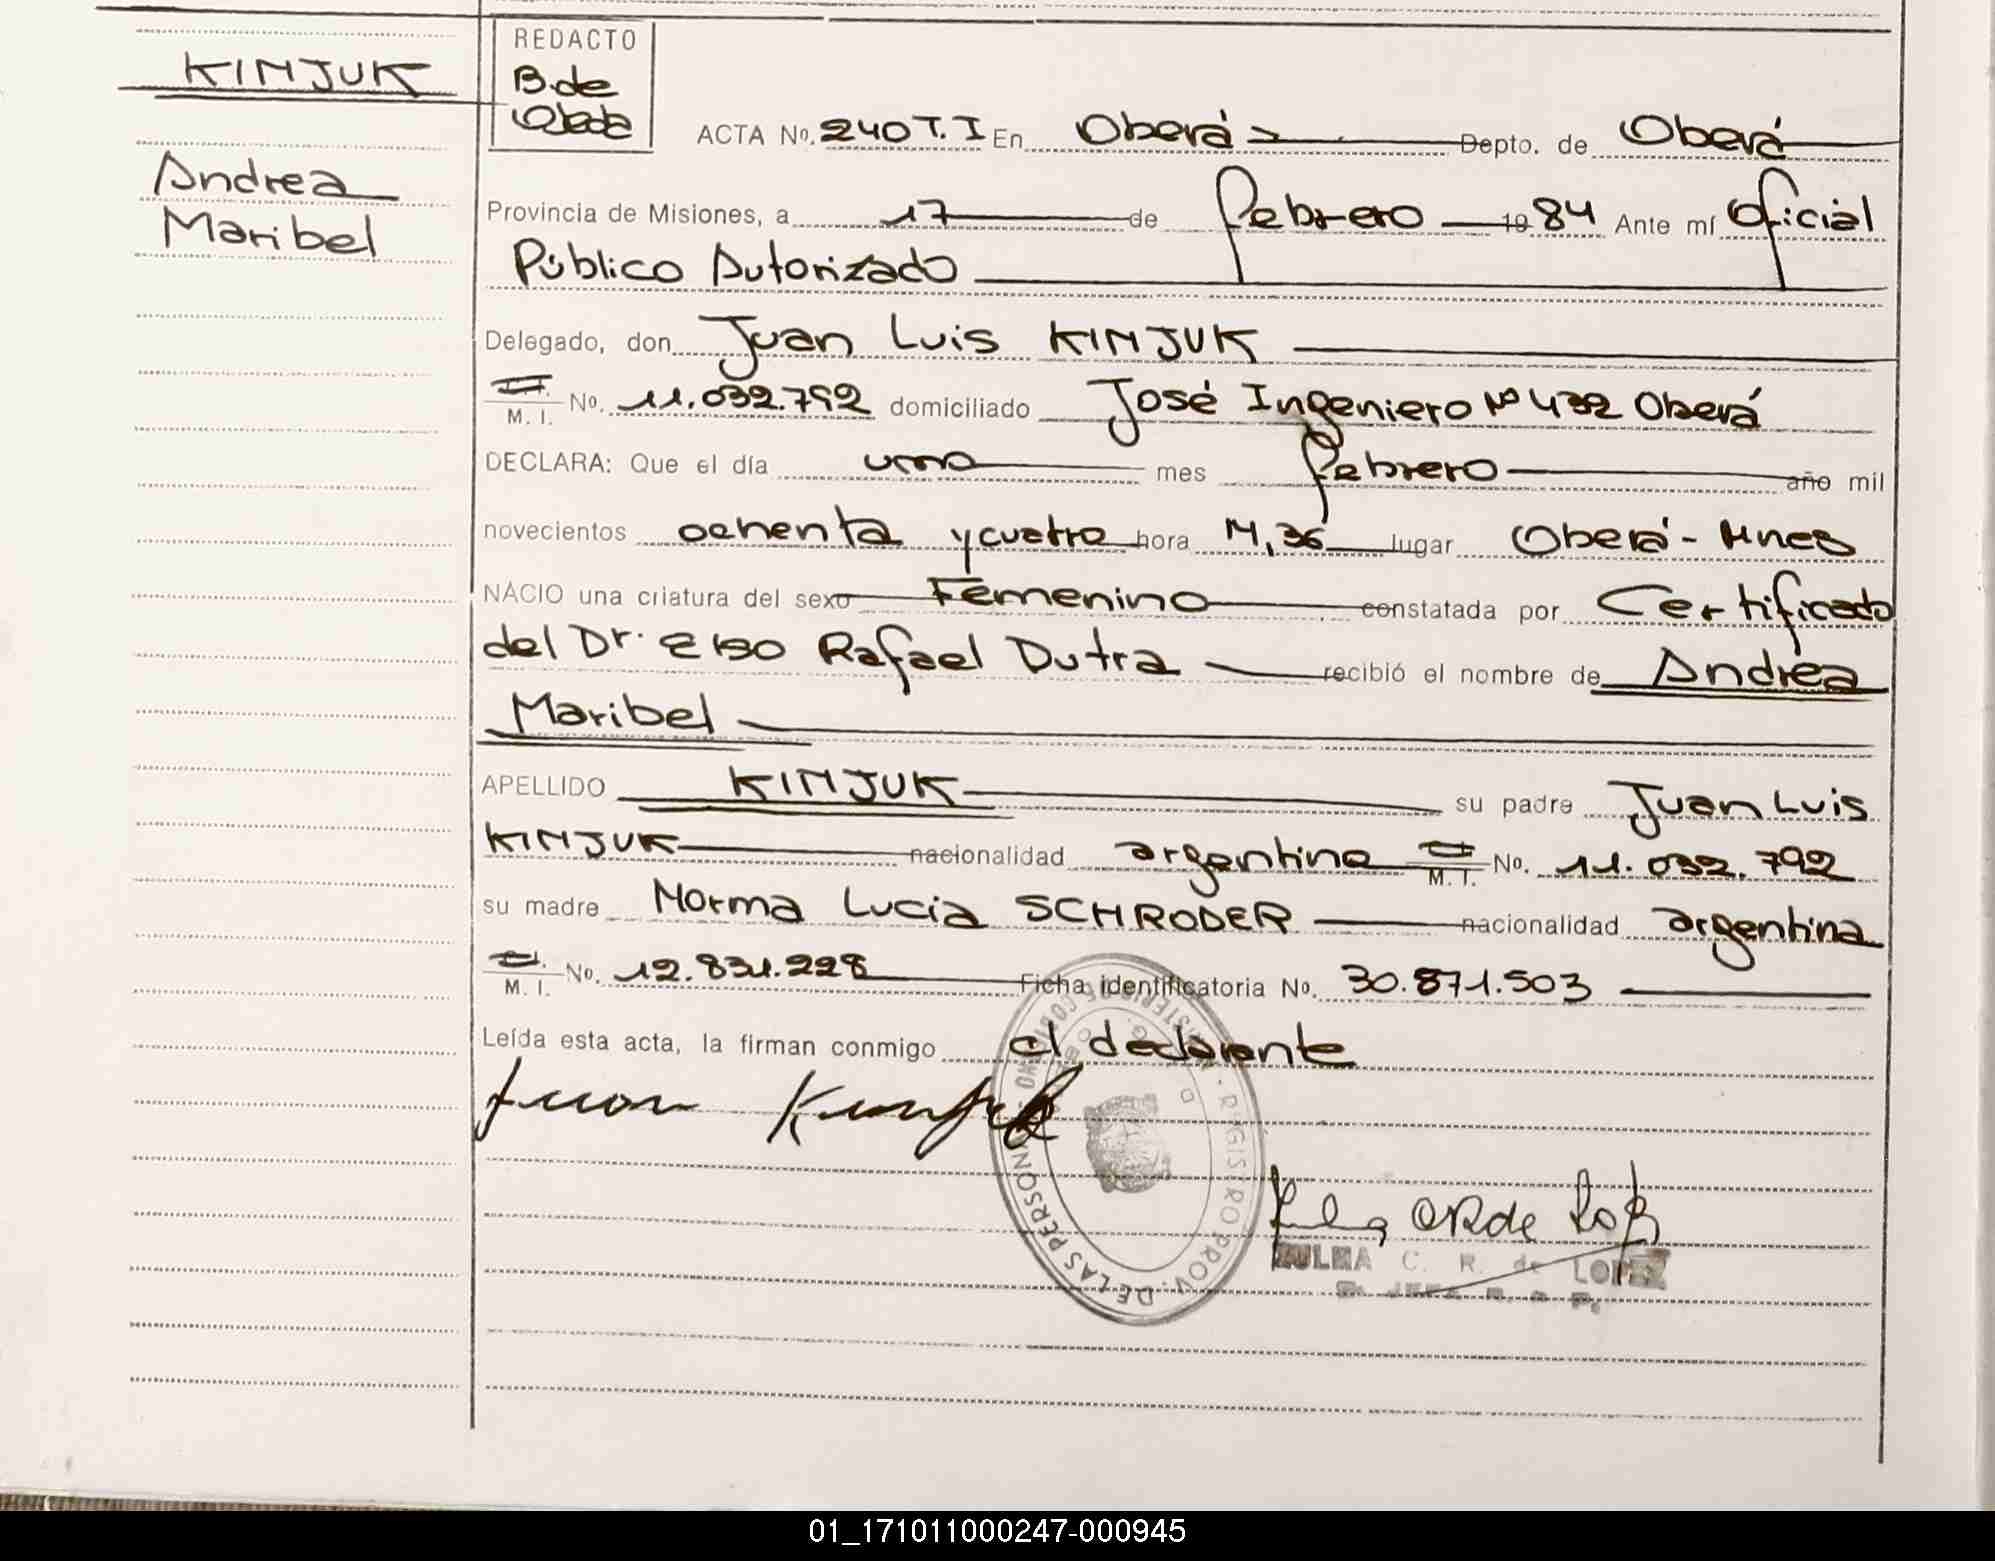 KINJUK
Andrea
Maribel
REDACTO
B. de
Ojeda
ACTA No. 240 T. I En Oberá Depto. de Oberá
Provincia de Misiones, a 17 de febrero 1984 Ante mí Oficial
Público Autorizado
Delegado, don Juan Luis KINJUK
M. I. No. 11.032.792 domiciliado José Ingeniero Nº 432 Oberá
DECLARA: Que el día uno mes febrero año mil
novecientos ochenta y cuatro hora lugar Oberá - Mnes
NACIO una criatura del sexo Femenino constatada por Certificado
del Dr. Elso Rafael Dutra recibió el nombre de Andrea
Maribel
APELLIDO KINJUK su padre Juan Luis
KINJUK nacionalidad argentina M. I. No. 11.032.792
su madre Norma Lucia SCHRODER nacionalidad argentina
M. I. No. 12.831.228 Ficha identificatoria No. 30.871.503
Leída esta acta, la firman conmigo el declarante
Juan
REGISTRO PROV. DE LAS PERSON
ZULMA C. R. de LOPEZ
01_171011000247-000945